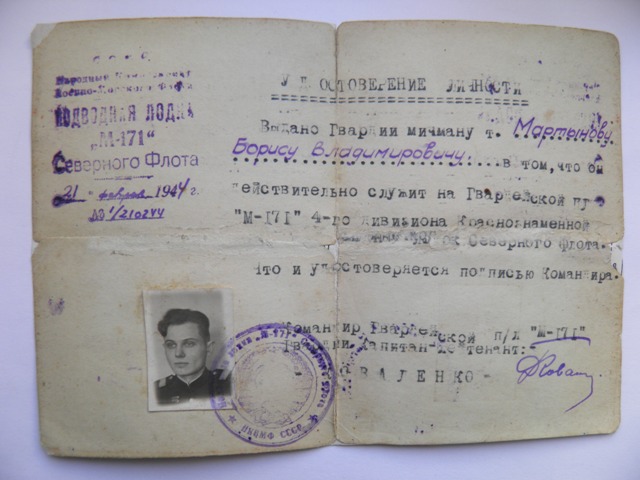 СССР
Народный Комиссариат
Военно-Морского Флота
ПОДВОДНАЯ ЛОДКА
„М-171“
Северного Флота
"21" февраля 1944 г.
№ 1/210244
УДОСТОВЕРЕНИЕ ЛИЧНОСТИ
Выдано Гвардии мичману т. Мартынову
Борису Владимировичу....в том, что он
действительно служит на Гвардейской п/л
"М-171" 4-го дивизиона Краснознаменной
Северного флота.
Что и удостоверяется подписью Командира.
Командир Гвардейской п/л "М-171"
Гвардии Капитан-Лейтенант:
КОВАЛЕНКО -
НКВМФ СССР